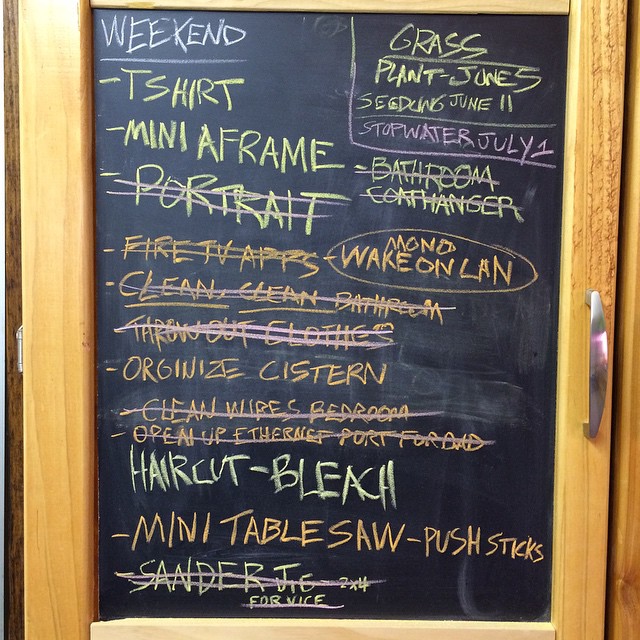 WEEKEND
GRASS
PLANT-JUNE 5
SEEDLING JUNE 11
STOP WATER JULY 1
-TSHIRT
-MINI AFRAME
-PORTRAIT
-BATHROOM
COATHANGER
-FIRE TV APPS
-MONO
WAKE ON LAN
-CLEAN CLEAN BATHROOM
THROW OUT CLOTHES
-ORGINIZE CISTERN
-CLEAN WIRES BEDROOM
-OPEN UP ETHERNET PORT FOR DAD
HAIRCUT-BLEACH
-MINI TABLE SAW-PUSH STICKS
-SANDER JIG- 2x4
FOR VICE